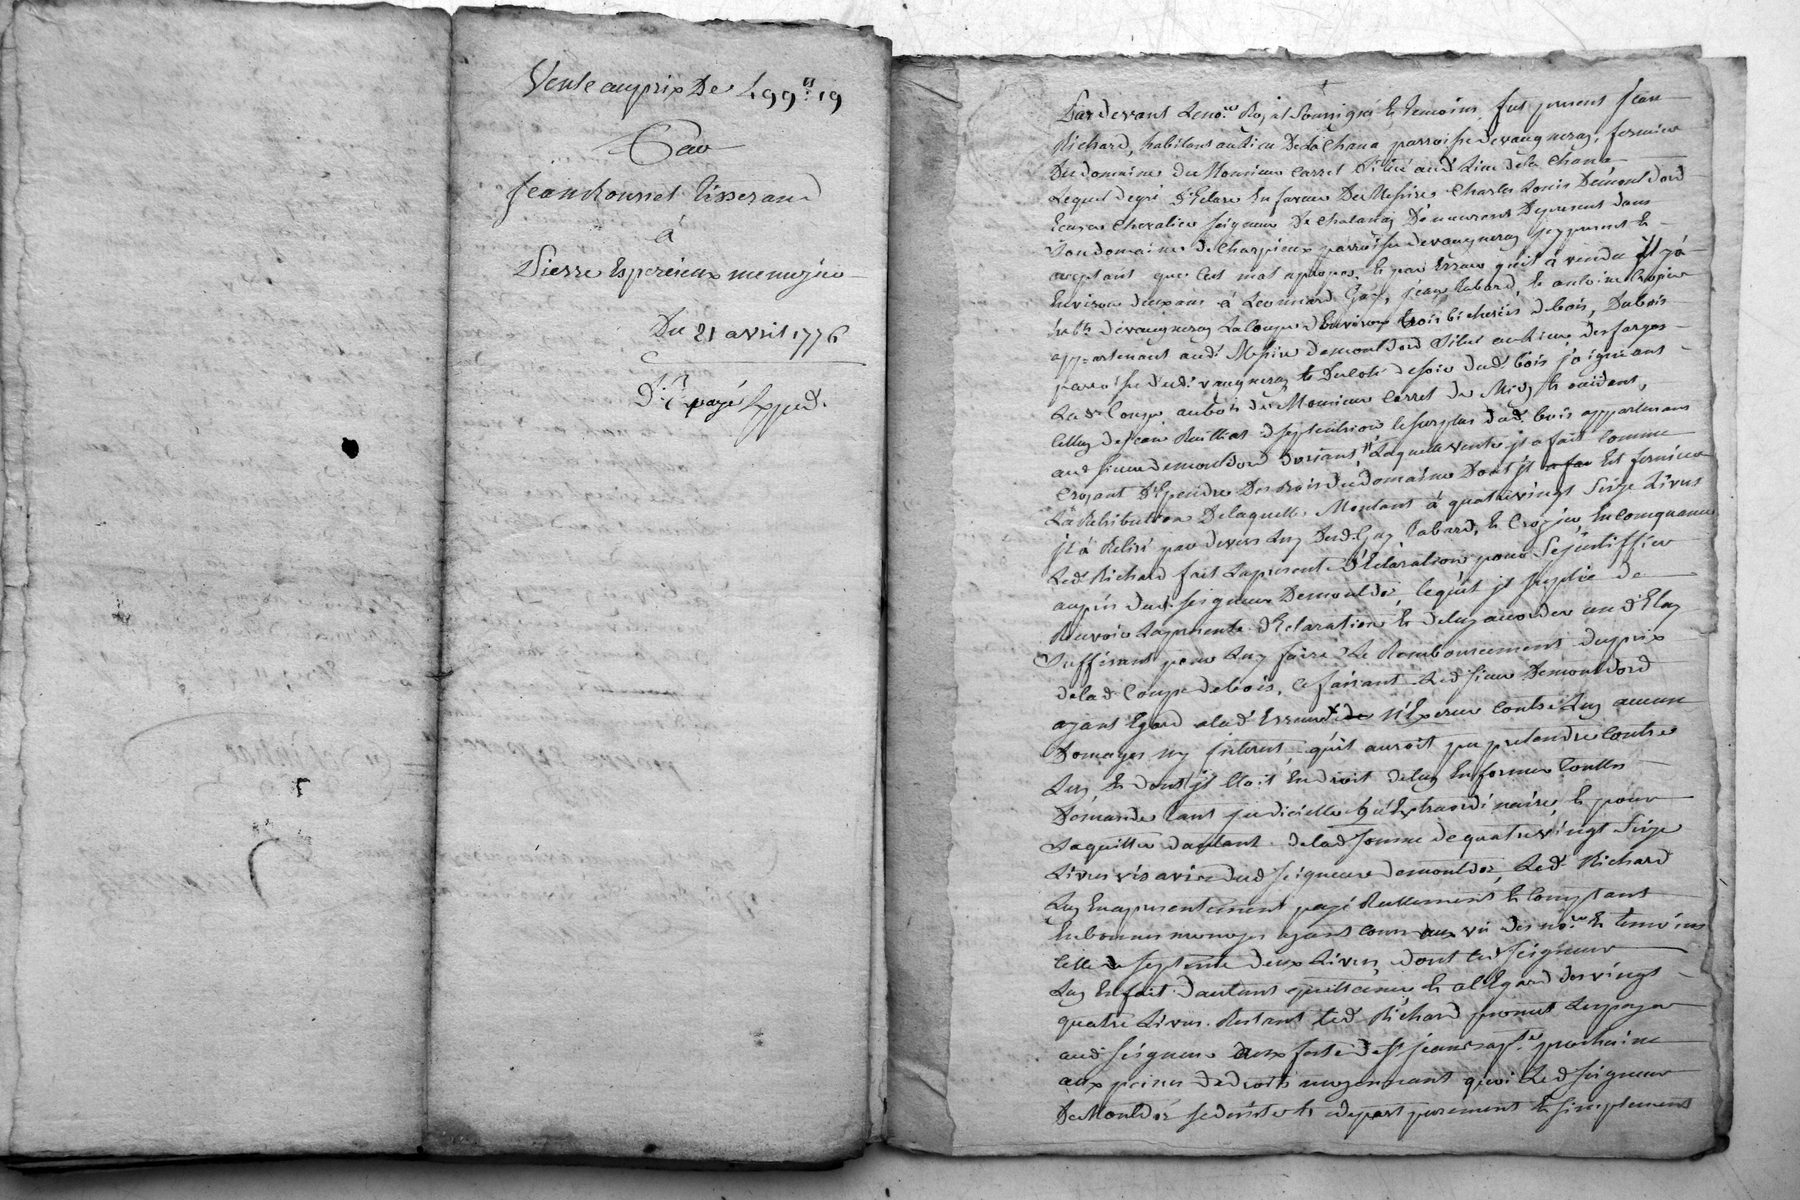 Vente au prix De 499ᵗᵗ: 19
Par
Jean Rousset Tisserand
à
Pierre Esperieux menuzier
Du 21 avril 1776
payé Exped.
Pardevant Le no.re Roy.al soussigné Et temoins fut present Jean
Richard, habitant au Lieu De la Chana parroisse devaugneray, fermier
Du domaine du Monsieur Carret Situé aud. Lieu de la Chana
Lequel degré D'Eclare En faveur De Messire Charles Louis Demont dord
Ecuyer Chevalier seigneur De Chalanay Demeurant Depresent dans
Son domaine de Charpieux parroisse devaugneray jcy present Et
aceptant que C'est mal apropos Et par Erreur qu'il à vendu jl y à
Environ deux ans à Leonnard Gay, jean Rabard, Et antoine Crozier
hab.ts devaugneray La Coupe d'Environ trois bicherées debois, Dubois
appartenant aud. Messire demontdord Situé au Lieu desfarges
parroisse dud. vaugneray Et Ducoté desoir dud. bois joignant
Lad. Coupe aubois de Monsieur Carret de Midy Et occident,
Celluy dejean Railliat deseptentrion Lesurplus dud. bois appartenant
aud. sieur demontdord d'orient, Laquelle vente jl a fait Comme
Croyant D'Ependre Des Bois du domaine Dont jl Est fermier
La Retribution Delaquelle Montant à quatrevingt Seize Livres
jl à Retiré par devers Luy Desd. Gay Rabard, Et Crozier, En Consequence
Led. Richard fait Lapresente d'Eclaration pour Sejustiffier
aupres dud. seigneur Demontdor, Lequel jl suplie de
Recevoir Lapresente d'Eclaration Et deluy accorder un d'Elay
Suffisant pour Luy faire Le Remboursement duprix
delad. Coupe debois, Ce faisant Led. sieur Demontdord
ayant Egard alad. Erreur N'Exercer Contre Luy aucun
Domages ny jnterest, qu'il auroit pu pretendre Contre
Luy, Et dont jl Etoit En droit deluy En former Touttes
Demande tant judicielle qu'Extraordinaire, Et pour
Saquitter dautant delad. somme de quatrevingt Seize
Livres vis avis dud. seigneur demontdor, Led. Richard
Luy En apresentement payé Reellement Et Comptant
En bonnes monoyes ayant Cours aux vû des no.re Et temoins
Celle de septente deux Livres, dont Led. seigneur
Luy En fait D'autant quittance, Et al'Egard des vingt
quatre Livres Restant Led. Richard promet Lespayer
aud. seigneur aux feste de St. jean bap.te prochaine
aux peines de droits moyennant quoi Led. seigneur
De Montdor se desiste Et depart purement Et simplement